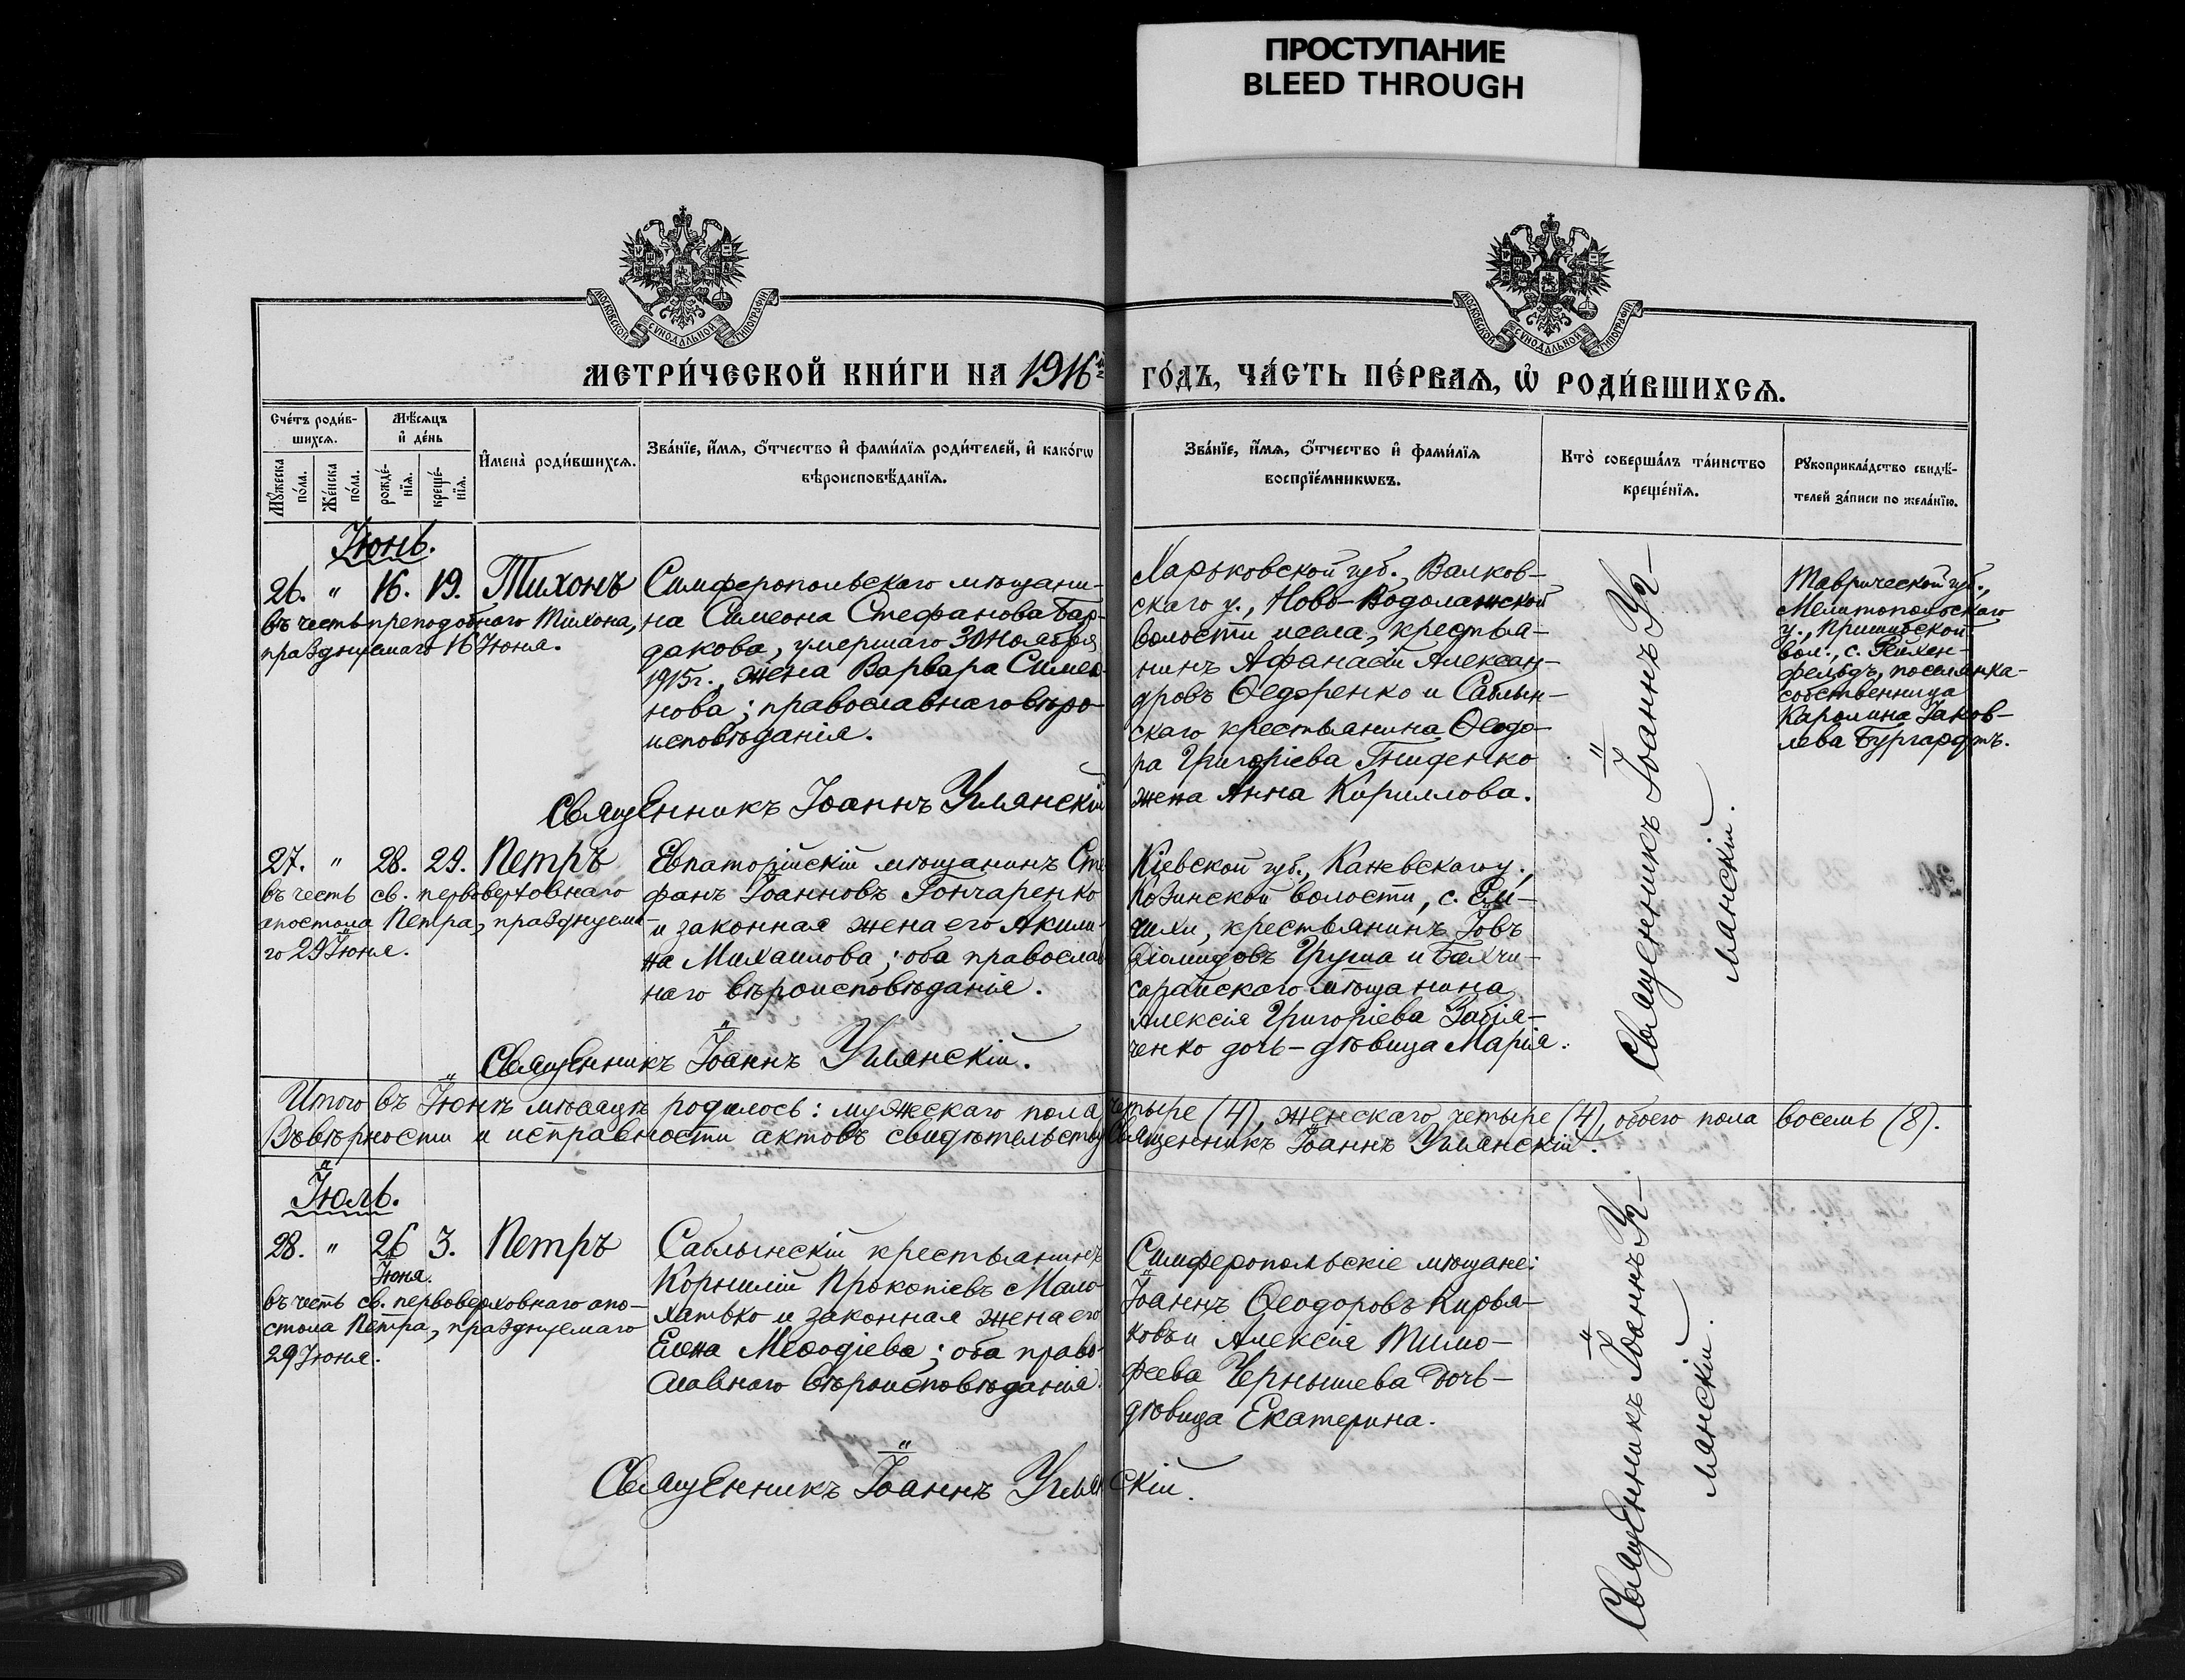 ПРОСТУПАНИЕ
BLEED THROUGH
МОСКОВСКОЙ СѴНОДАЛЬНОЙ ТИПОГРАФІИ
МОСКОВСКОЙ СѴНОДАЛЬНОЙ ТИПОГРАФІИ
МЕТРИ́ЧЕСКОЙ КНИ́ГИ НА 1916й ГО́ДЪ, ЧА́СТЬ ПЕ́РВАѦ, Ѽ РОДИ́ВШИХСѦ.
Сче́тъ роди́в-
шихсѧ.
Мꙋ́жеска по́ла.
Же́нска по́ла.
Мѣ́сѧцъ
и҆ де́нь
рожде́-
нїѧ.
креще́-
нїѧ.
И҆мена̀ роди́вшихсѧ.
Зва́нїе, и҆́мѧ, ѻ҆́тчество и҆ фами́лїѧ роди́телей, и҆ како́гѡ
вѣроисповѣ́данїѧ.
Зва́нїе, и҆́мѧ, ѻ҆́тчество и҆ фами́лїѧ
воспрїе́мникѡвъ.
Кто̀ соверша́лъ та́инство
креще́нїѧ.
Рꙋкоприкла́дство свидѣ́-
телей за́писи по жела́нїю.
Іюнь.
26. " 16. 19. Тихонъ
въ честь преподобнаго Тихона,
празднуемаго 16 Іюня.
Симферопольскаго мѣщани-
на Симеона Стефанова Бар-
дакова, умершаго 30 Ноября
1915г., жена Варвара Симео
нова; православнаго вѣро-
исповѣданія.
Священникъ Іоаннъ Уманскій
Харьковской губ., Валков-
скаго у., Ново-Водолажской
волости и села, крестья-
нинъ Афанасій Алексан-
дровъ Ѳедоренко и Саблын-
скаго крестьянина Ѳеодо-
ра Григоріева Гниденко
жена Анна Кириллова.
Священникъ Іоаннъ У-
манскій.
Таврической губ.,
Мелитопольскаго
у., Пришибской
вол., с. Рейхен-
фельдъ, поселянка-
собственница
Каролина Іаков-
лева Бургардтъ.
27. " 28. 29. Петръ
въ честь св. первоверховнаго
апостола Петра, празднуема-
го 29 Іюня.
Евпаторійскій мѣщанинъ Сте
фанъ Іоанновъ Гончаренко
и законная жена его Акили-
на Михаилова; оба православ
наго вѣроисповѣданія.
Священникъ Іоаннъ Уманскій.
Кіевской губ., Каневскаго у.,
Козинской волости, с.
крестьянинъ Іовъ
Діомидовъ Груша и Бахчи-
сарайскаго мѣщанина
Алексія Григоріева
ченко дочь-дѣвица Марія.
Итого въ Іюнѣ мѣсяцѣ родилось: мужескаго пола четыре (4), женскаго четыре (4), обоего пола восемь (8).
Въ вѣрности и исправности актовъ свидѣтельству Священникъ Іоаннъ Уманскій.
Іюль.
28. " 26 3. Петръ
Іюня.
въ честь св. первоверховнаго апо-
стола Петра, празднуемаго
29 Іюня.
Саблынскій крестьянинъ
Корнилій Прокопіевъ Мало-
хатько и законная жена его
Елена Меѳодіева; оба право-
славнаго вѣроисповѣданія.
Священникъ Іоаннъ Уманскій.
Симферопольскіе мѣщане:
Іоаннъ Ѳеодоровъ Кирья-
ковъ и Алексія Тимо-
феева Чернышева дочь-
дѣвица Екатерина.
Священникъ Іоаннъ У-
манскій.